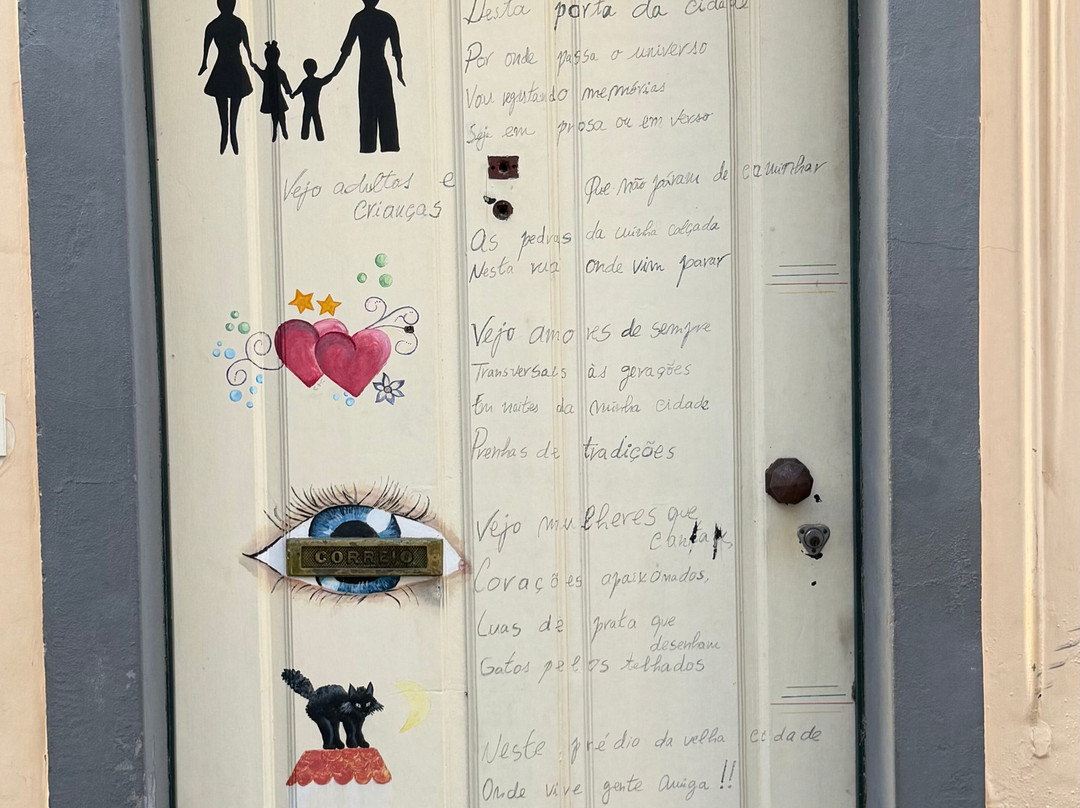 Desta porta da cidade
Por onde passa o universo
Vou registando memórias
Seja em prosa ou em verso
Vejo adultos e
crianças
Que não param de caminhar
As pedras da minha calçada
Nesta rua onde vim parar
Vejo amores de sempre
Transversais às gerações
Em noites da minha cidade
Prenhas de tradições
Vejo mulheres que
cantam,
Corações apaixonados,
Luas de prata que
desenham
Gatos pelos telhados
Neste prédio da velha cidade
Onde vive gente amiga!!
CORREIO